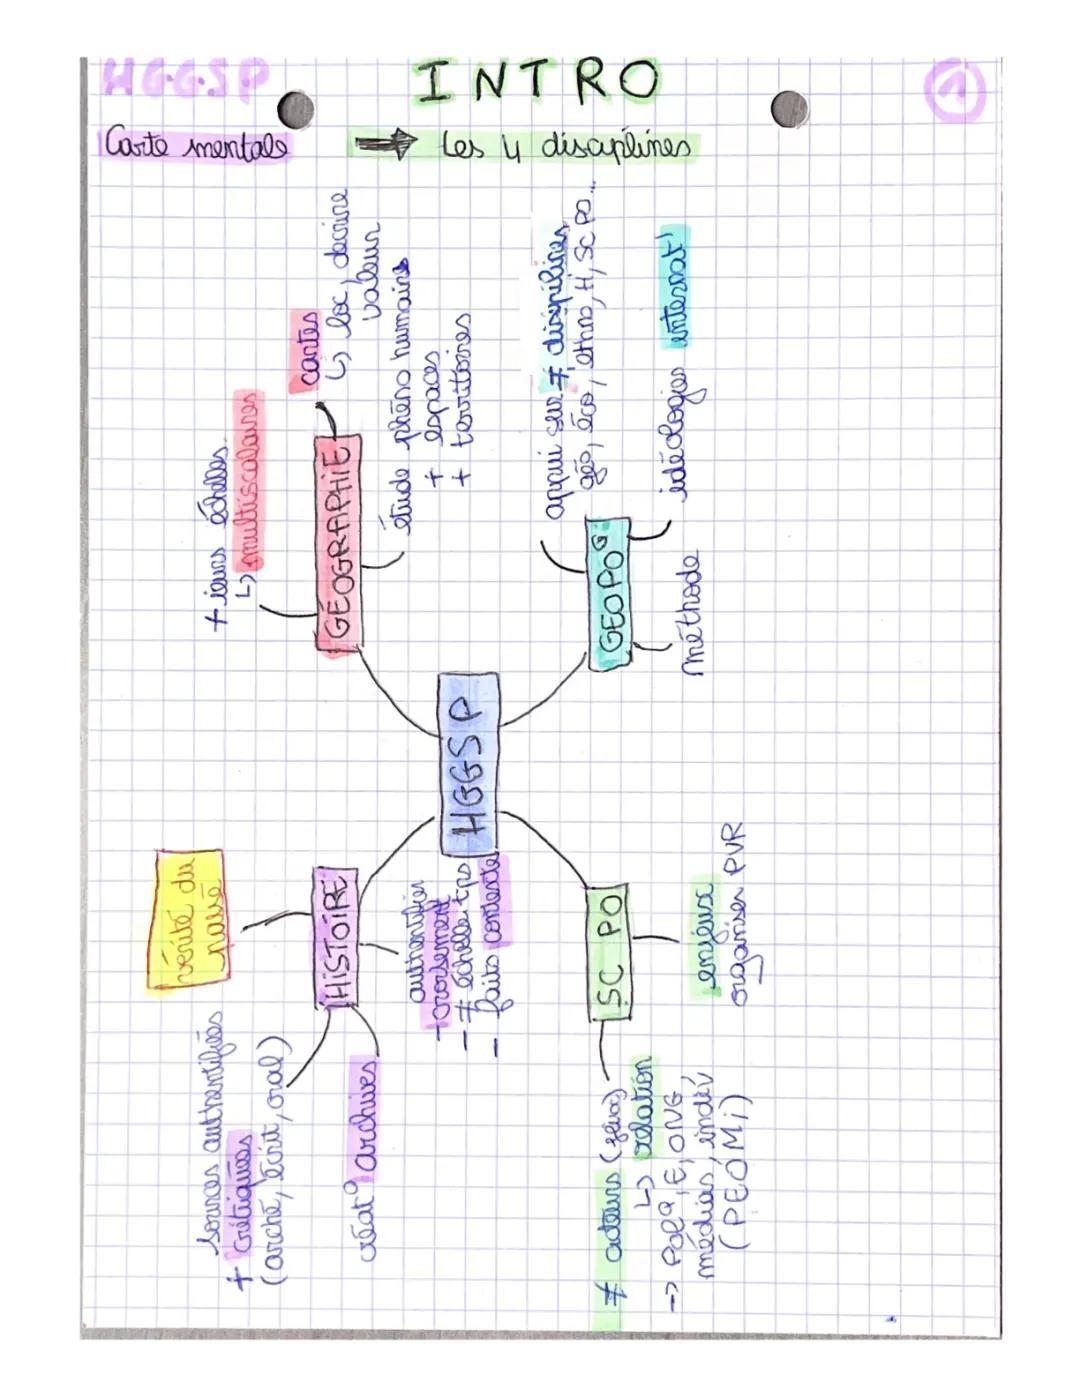 HGGSP
INTRO
1
Carte mentale
→ les 4 disciplines
HGGSP
GÉOGRAPHIE
+ieurs échelles
↳ multiscalaires
cartes
↳ loc, décrire
valeur
étude phéno humains
+ espaces
+ territoires
GEOPO
appui sur ≠ disciplines
géo, éco, ethno, H, SC PO...
idéologies internat°
méthode
HISTOIRE
vérité du
passé
sources authentifiées
+ critiquées
(arché, écrit, oral)
créat° archives
authentifier
- croisement
- ≠ échelle tps
- faits contexte
SC PO
≠ acteurs
↳ relation
→ Pol, E, ONG
médias, indiv
(PEOMi)
enjeux
organiser PVR